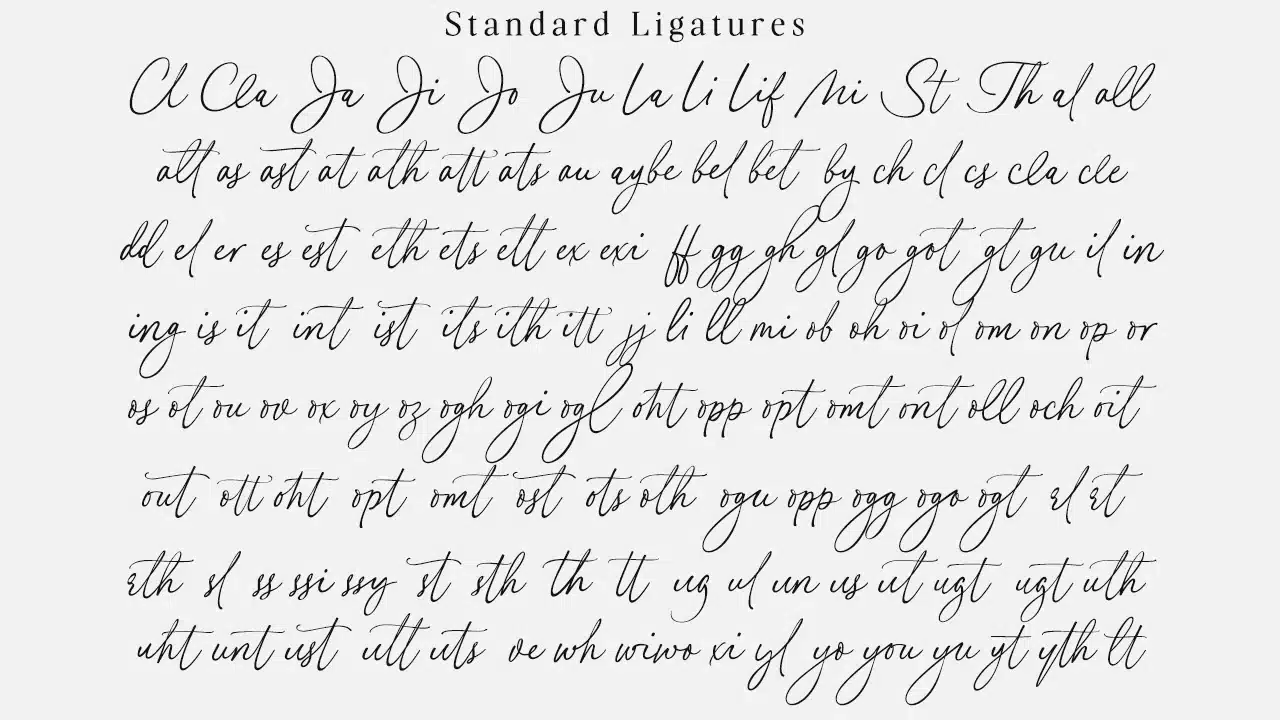 Standard Ligatures
Cl Cla Ja Ji Jo Ju La Li Lif Mi St Th al all
alt as ast at ath att ats au aybe bel bet by ch cl cs cla cle
dd el er es est eth ets ett ex exi ff gg gh gl go got gt gu il in
ing is it int ist its ith itt jj li ll mi ob oh oi ol om on op or
os ot ou ov ox oy oz ogh ogi ogl oht opp opt omt ont oll och oit
out ott oht opt omt ost ots oth ogu opp ogg ogo ogt rl rt
rth sl ss ssi ssy st sth th tt ug ul un us ut ugt ugt uth
uht unt ust utt uts ve wh wiwo xi yl yo you yu yt yth lt